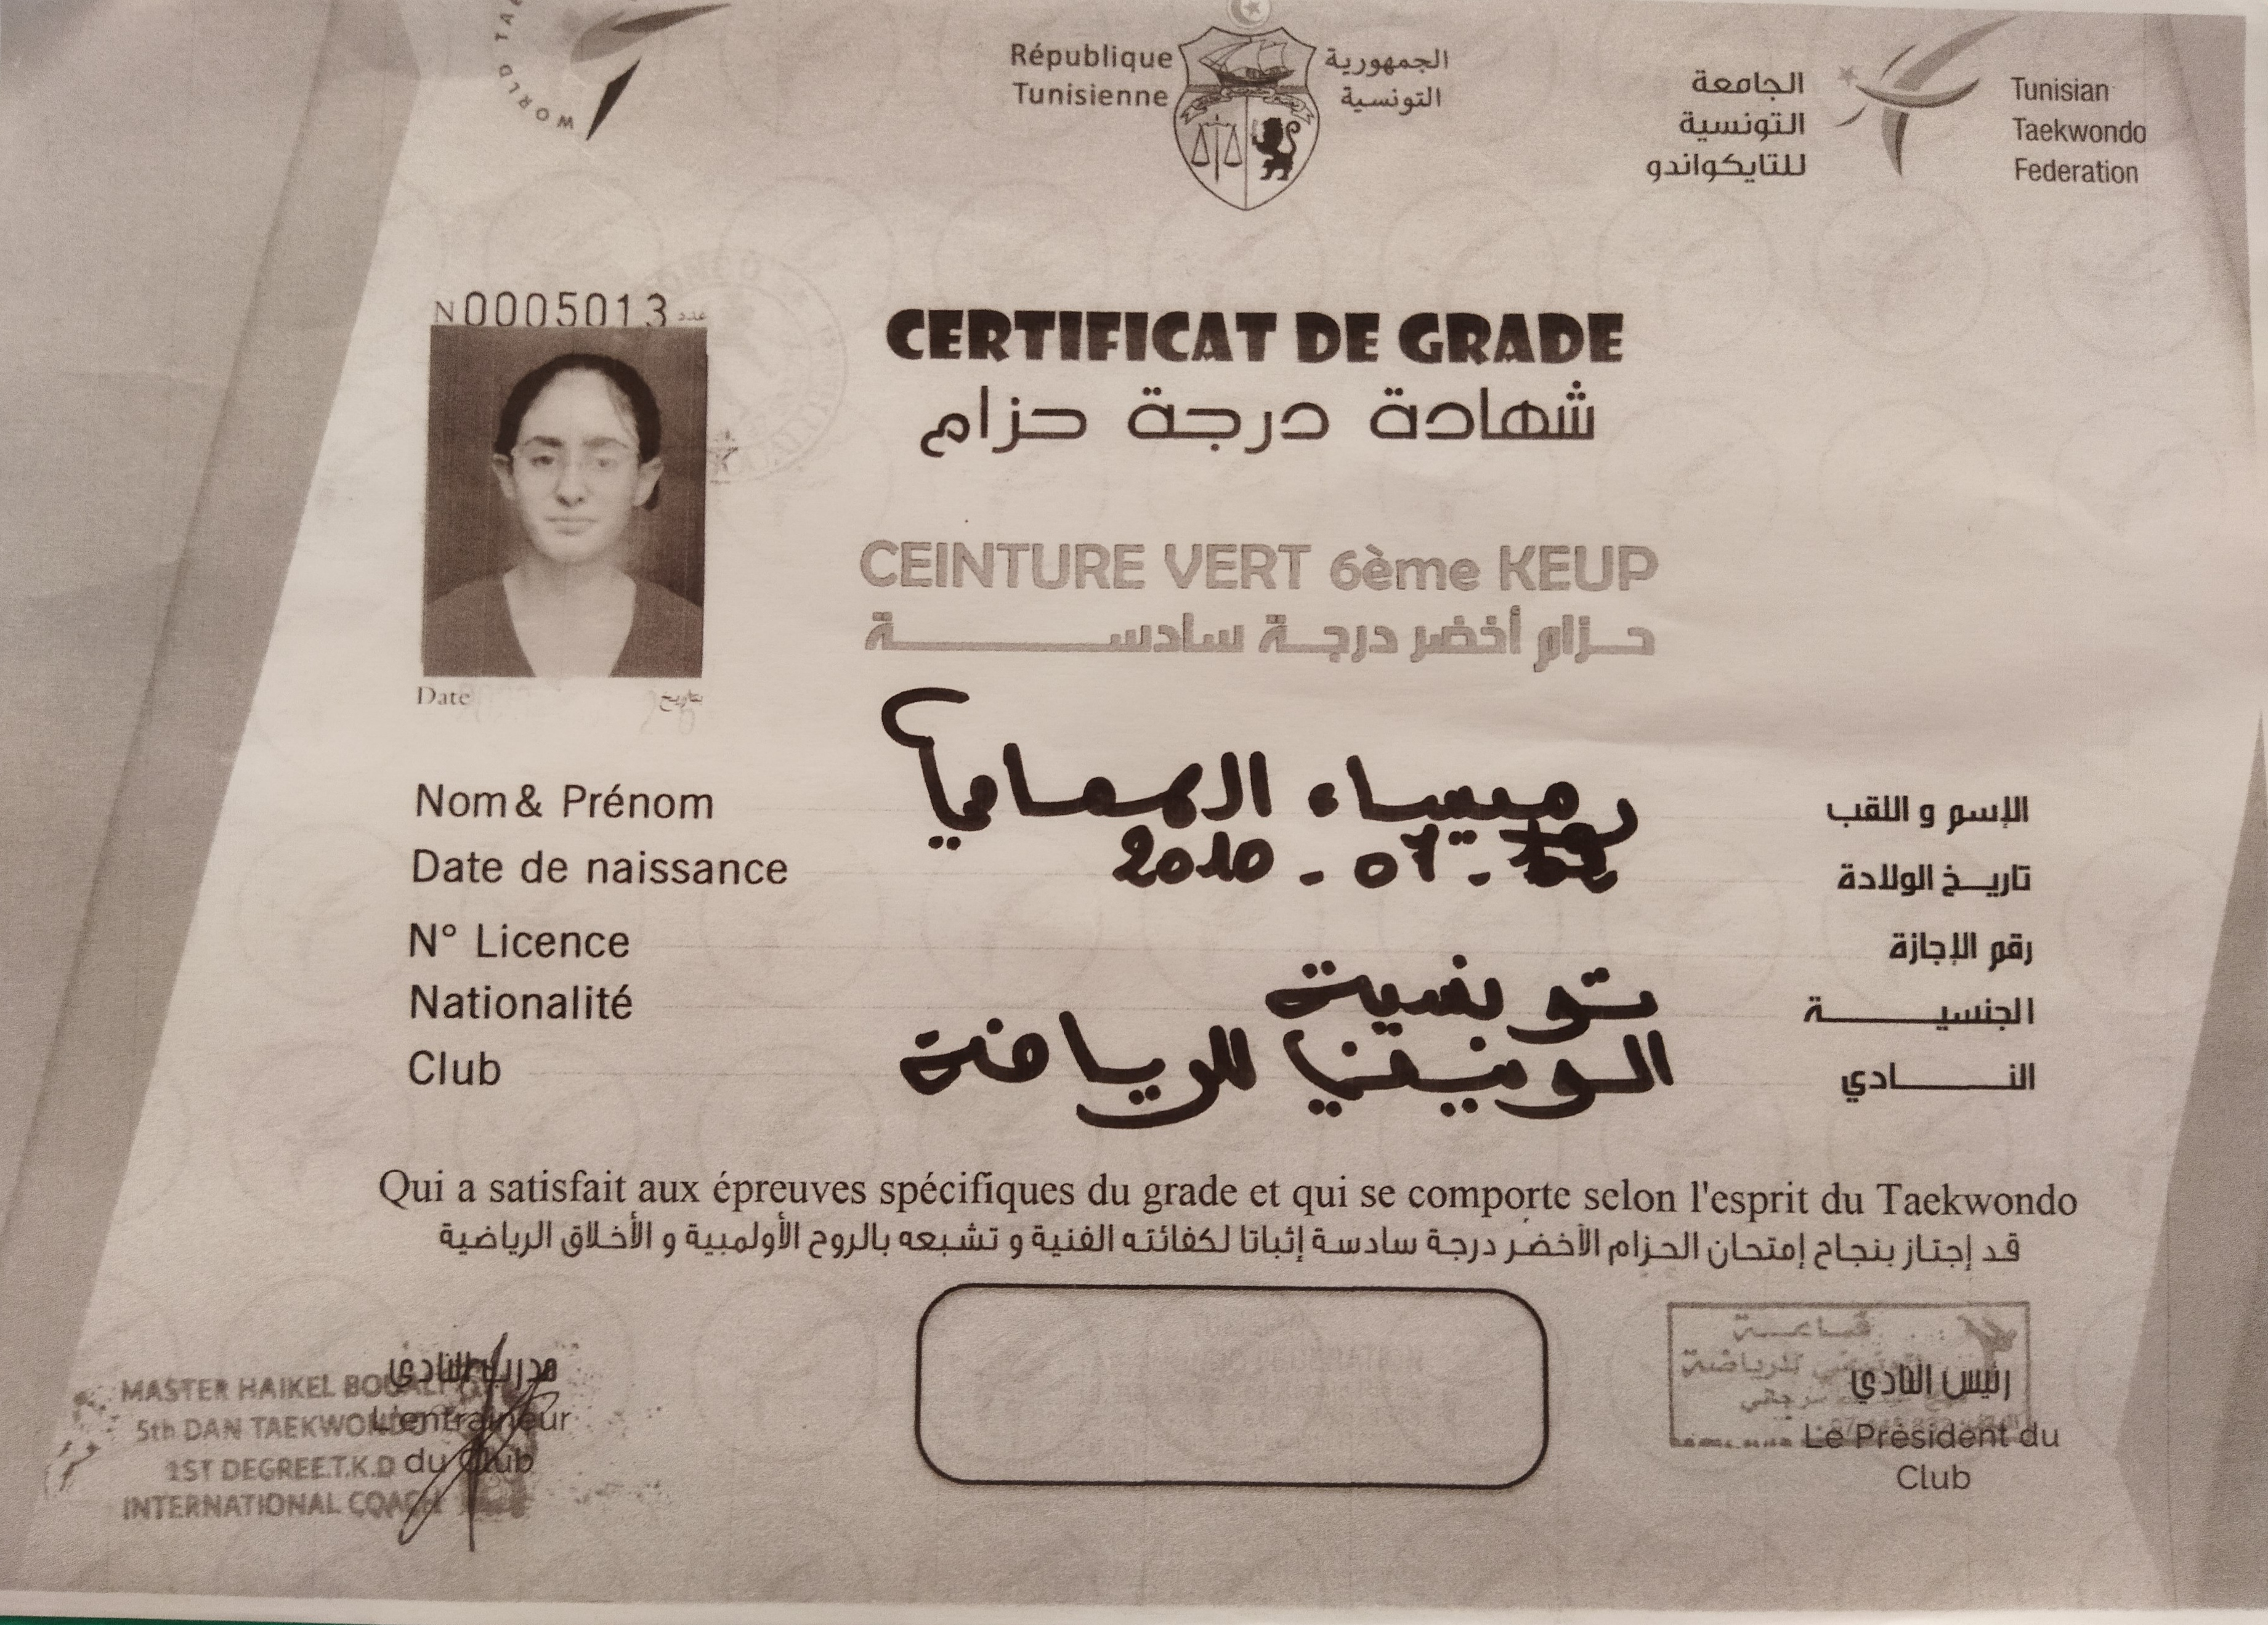 WORLD TAE
République
Tunisienne
الجمهورية
التونسية
الجامعة
التونسية
للتايكواندو
Tunisian
Taekwondo
Federation
N 0005013 عدد
CERTIFICAT DE GRADE
شهادة درجة حزام
CEINTURE VERT 6ème KEUP
حزام أخضر درجة سادسة
Date بتاريخ
Nom & Prénom رميساء الهمامي الإسم و اللقب
Date de naissance 2010 - 07 - تاريخ الولادة
N° Licence رقم الإجازة
Nationalité تونسية الجنسية
Club للرياضة النادي
Qui a satisfait aux épreuves spécifiques du grade et qui se comporte selon l'esprit du Taekwondo
قد إجتاز بنجاح إمتحان الحزام الأخضر درجة سادسة إثباتا لكفائته الفنية و تشبعه بالروح الأولمبية و الأخلاق الرياضية
مدرب النادي
L'entraineur
du Club
MASTER HAIKEL BOUALI
5th DAN TAEKWONDO
1ST DEGREE T.K.D
INTERNATIONAL COACH
قاعة
للرياضة
رئيس النادي
Le Président du
Club